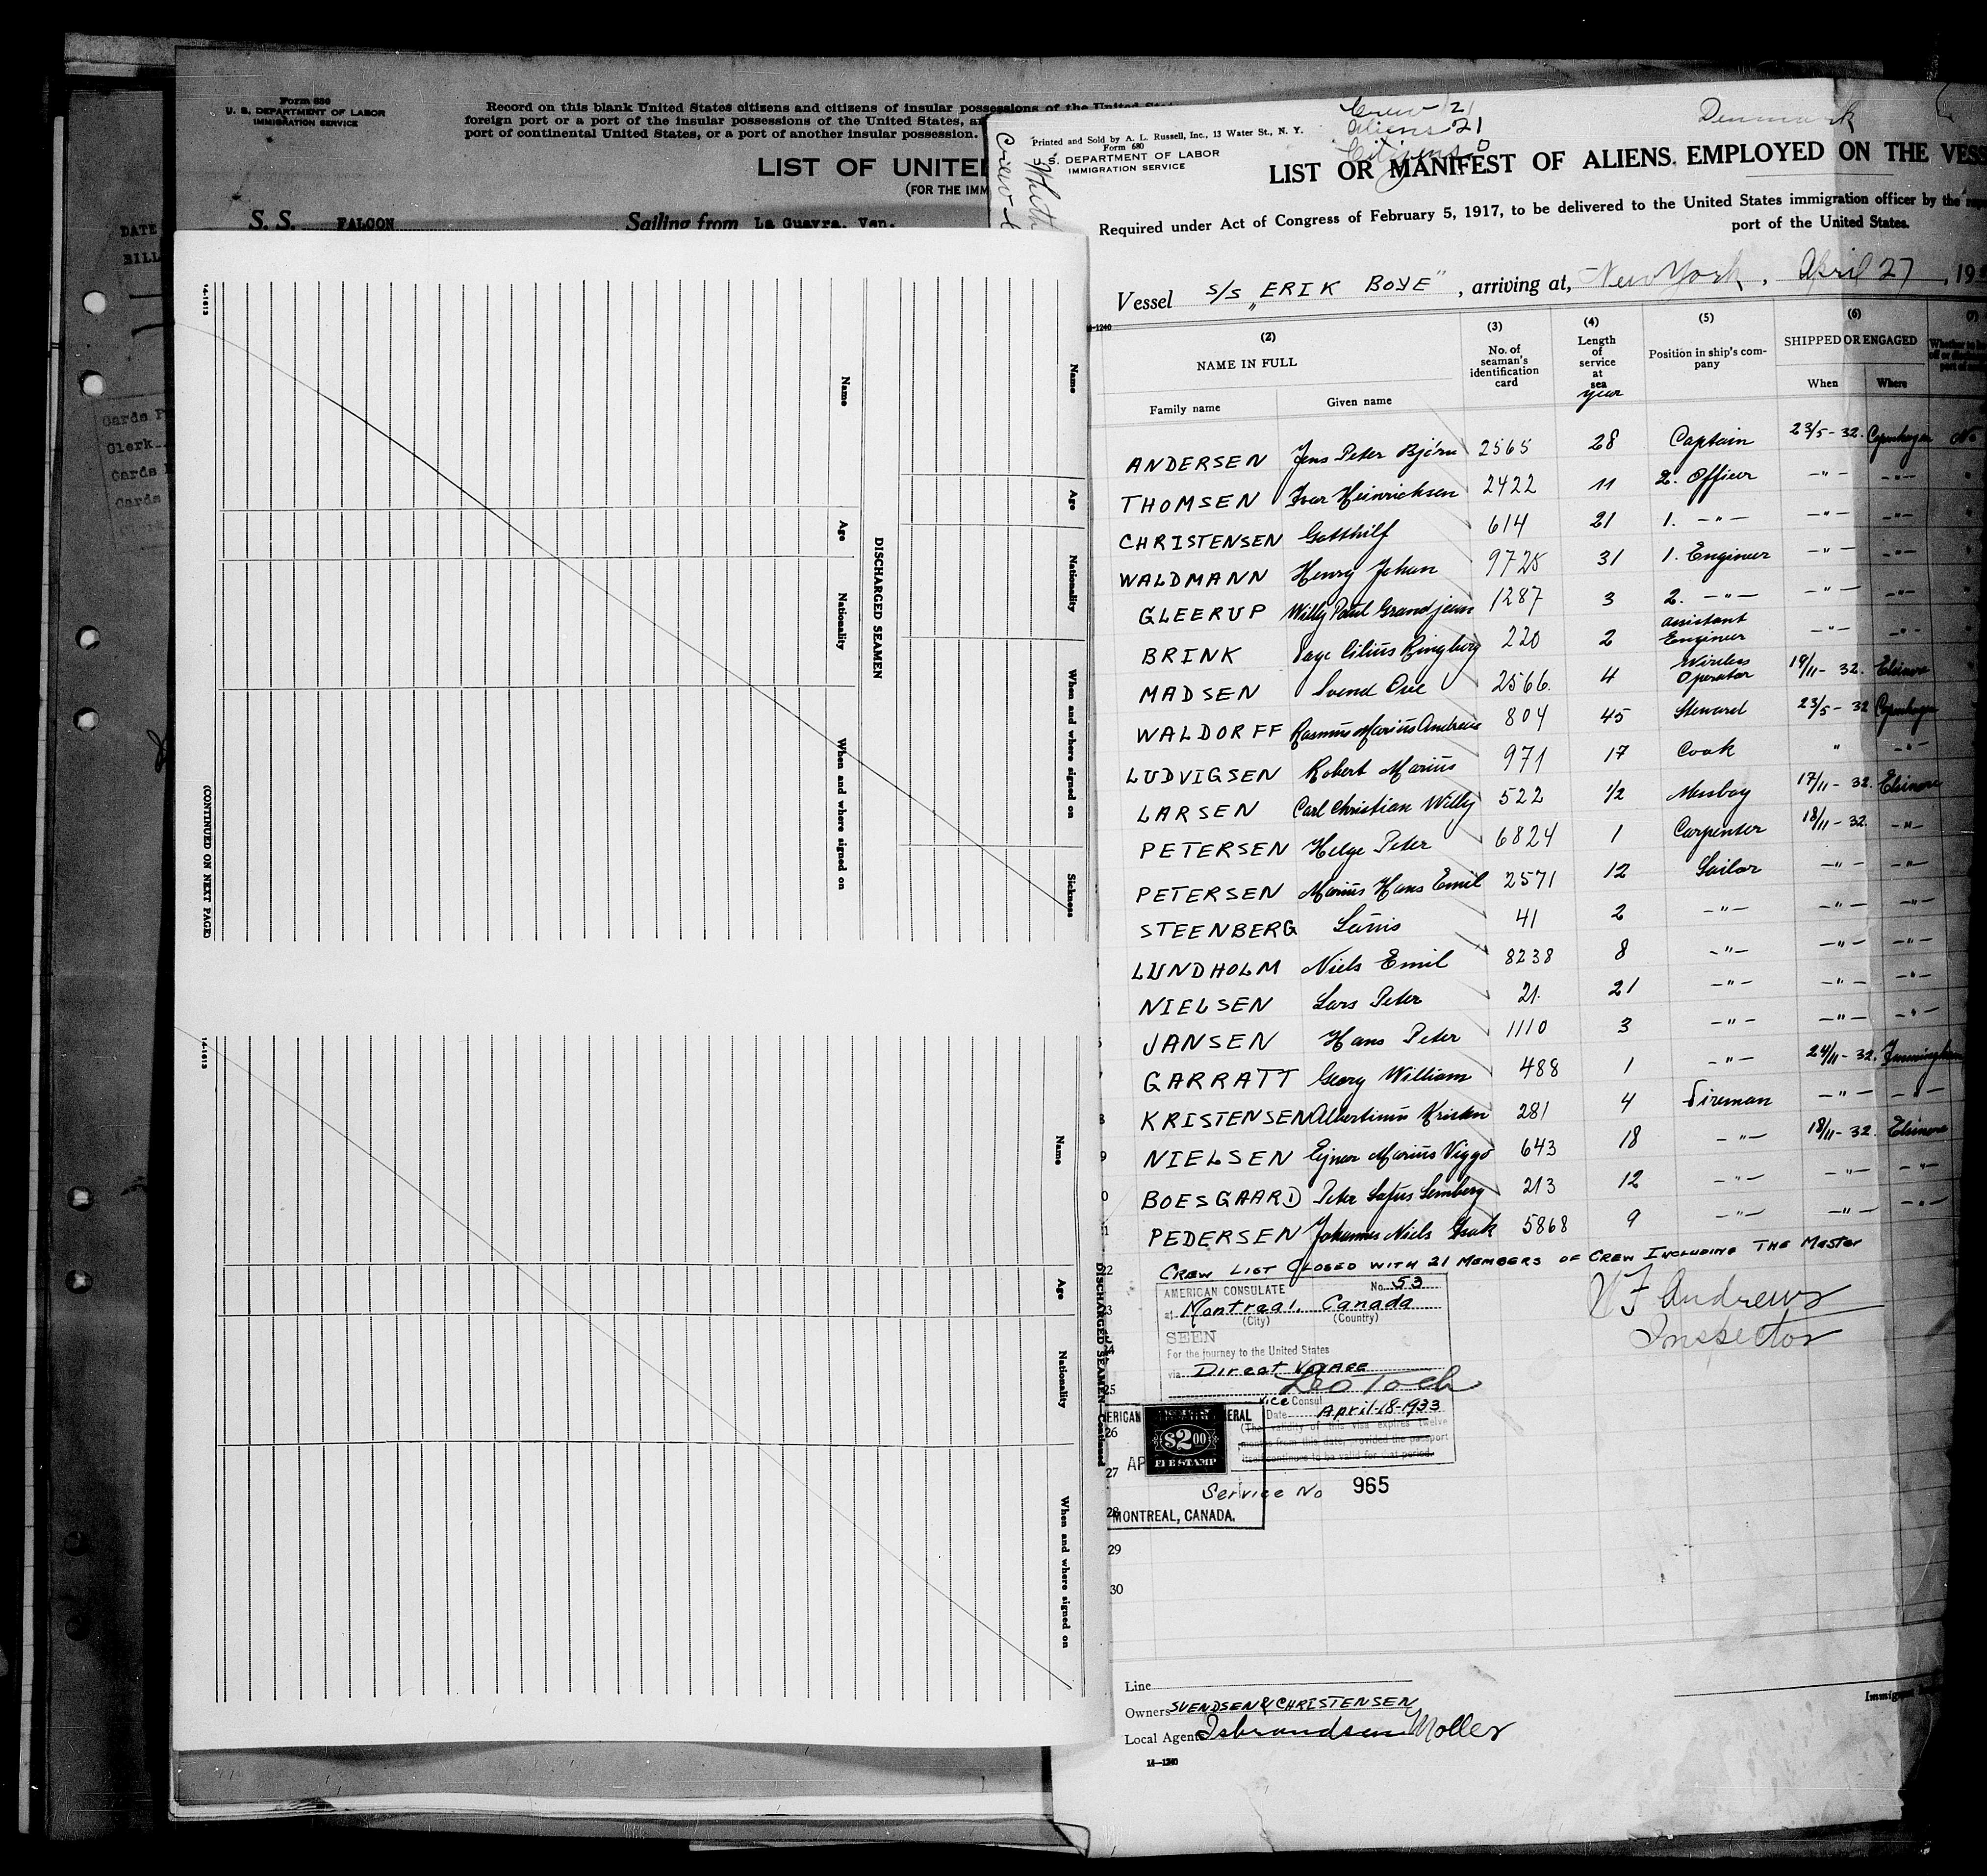 Form 680
U. S. DEPARTMENT OF LABOR
IMMIGRATION SERVICE
Record on this blank United States citizens and citizens of insular possessions of the United
foreign port or a port of the insular possessions of the United States,
port of continental United States, or a port of another insular possession.
LIST OF UNITE
(FOR THE IMM
S. S. FALCON Sailing from La Guayra, Ven.
DATE
BILL
Cards
Clerk
Cards
Cards
14-1613
Name
Age
Nationality
When and where signed on
Sickness
DISCHARGED SEAMEN
Name
Age
Nationality
When and where signed on
(CONTINUED ON NEXT PAGE)
14-1613
Name
Age
Nationality
When and where signed on
DISCHARGED SEAMEN—Continued
Crew 21
Aliens 21
Citizens 0
Denmark
Printed and Sold by A. L. Russell, Inc., 13 Water St., N. Y.
Form 680
U. S. DEPARTMENT OF LABOR
IMMIGRATION SERVICE
LIST OR MANIFEST OF ALIENS EMPLOYED ON THE VESS
Required under Act of Congress of February 5, 1917, to be delivered to the United States immigration officer by the
port of the United States.
Vessel S/S „ERIK BOYE", arriving at, New York, April 27, 19
(2) NAME IN FULL
Family name Given name
(3) No. of seaman's identification card
(4) Length of service at sea
year
(5) Position in ship's company
(6) SHIPPED OR ENGAGED
When Where
(7)
ANDERSEN Jens Peter Bjórn 2565 28 Captain 23/5-32. Copenhagen No
THOMSEN Ivar Heinrichsen 2422 11 2. Officer -"- -"- "
CHRISTENSEN Gotthilf 614 21 1. -"- -"- -"- "
WALDMANN Henry Johan 9725 31 1. Engineer -"- -"- "
GLEERUP Willy Paul Grandjean 1287 3 2. -"- -"- -"- "
BRINK 220 2 assistant Engineer -"- -"- "
MADSEN Svend Ove 2566. 4 Wireless Operator 19/11-32. Elsinore
WALDORFF Rasmus Marius Andreas 804 45 Steward 23/5-32 Copenhagen
LUDVIGSEN Robert Marius 971 17 Cook " -"-
LARSEN Carl Christian Willy 522 1/2 Messboy 17/11-32. Elsinore
PETERSEN Helge Peter 6824 1 Carpenter 18/11-32. -"-
PETERSEN Marius Hans Emil 2571 12 Sailor -"- -"-
STEENBERG Lauris 41 2 -"- -"- -"-
LUNDHOLM Niels Emil 8238 8 -"- -"- -"-
NIELSEN Lars Peter 21. 21 -"- -"- -"-
JANSEN Hans Peter 1110 3 -"- -"- -"-
GARRATT Georg William 488 1 -"- 24/11-32.
KRISTENSEN Albertinus Kristen 281 4 Fireman -"- -"-
NIELSEN Ejnar Marius Viggo 643 18 -"- 18/11-32. Elsinore
BOESGAARD Peter Lemberg 213 12 -"- -"- -"-
PEDERSEN Johannes Niels Isak 5868 9 -"- -"- -"-
CREW LIST CLOSED WITH 21 MEMBERS OF CREW INCLUDING THE Master
AMERICAN CONSULATE No. 53
at Montreal, Canada
(City) (Country)
SEEN
For the journey to the United States
via Direct Voyage
Leo Toch
Vice Consul
Date April-18-1933
(The validity of this visa expires twelve
months from this date, provided the passport
itself continues to be valid for that period.
Andrews
Inspector
25
26
27
$2.00
FEE STAMP
Service No 965
28
MONTREAL, CANADA.
29
30
Line
Owners SVENDSEN & CHRISTENSEN
Local Agents Isbrandsen Moller
14—1240